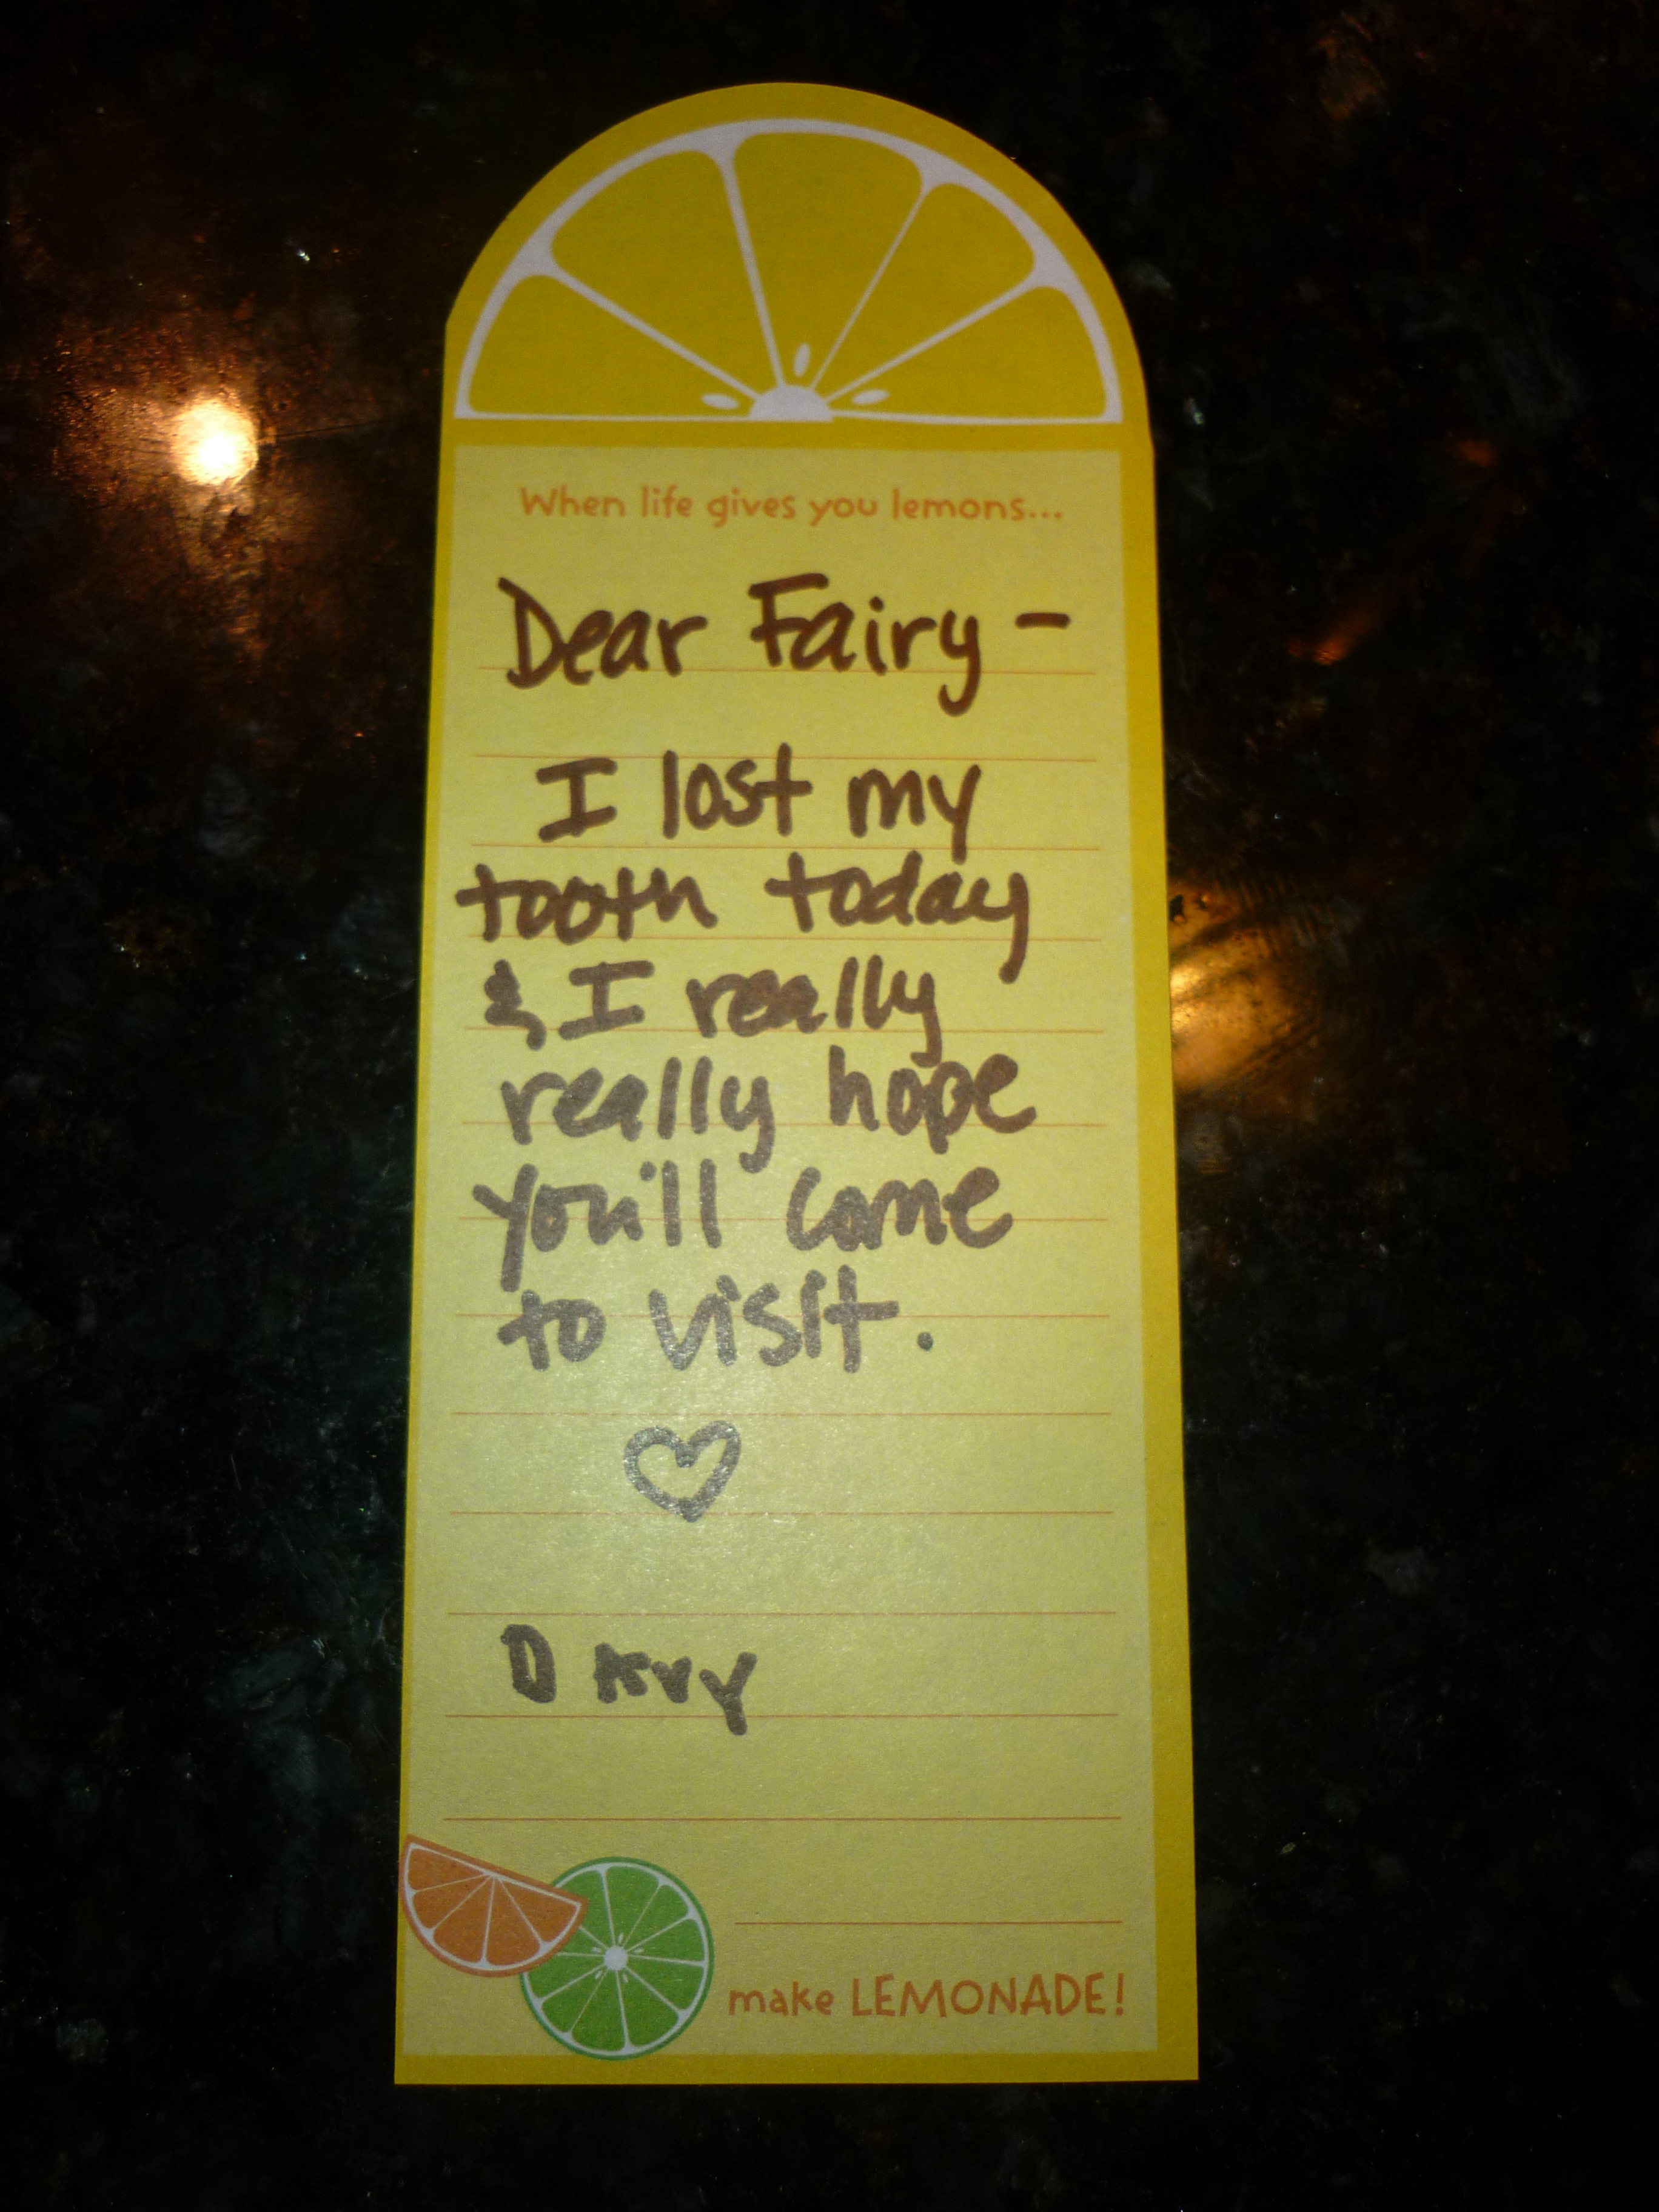 When life gives you lemons...
Dear Fairy -
I lost my
tooth today
& I really
really hope
you'll come
to visit.
♡
make LEMONADE!